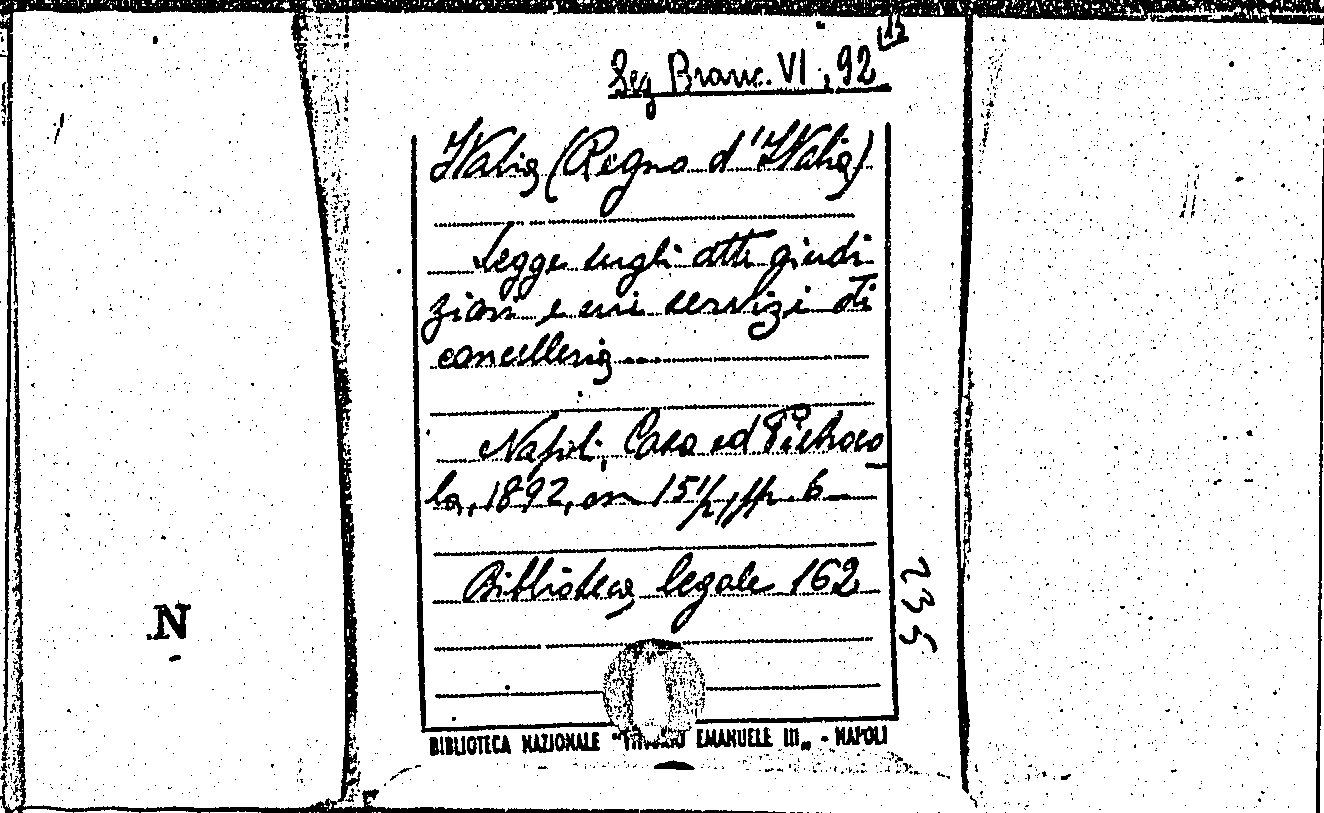 Seg Branc. VI, 92 (13
Italia (Regno d'Italia)
Legge sugli atti giudi
ziari e sui servizi di
cancelleria....
Napoli, Casa ed Pietroco
la, 1892, cm 15½, pp. 6
Biblioteca legale 162
235
N
BIBLIOTECA NAZIONALE "VITTORIO EMANUELE III„ - NAPOLI